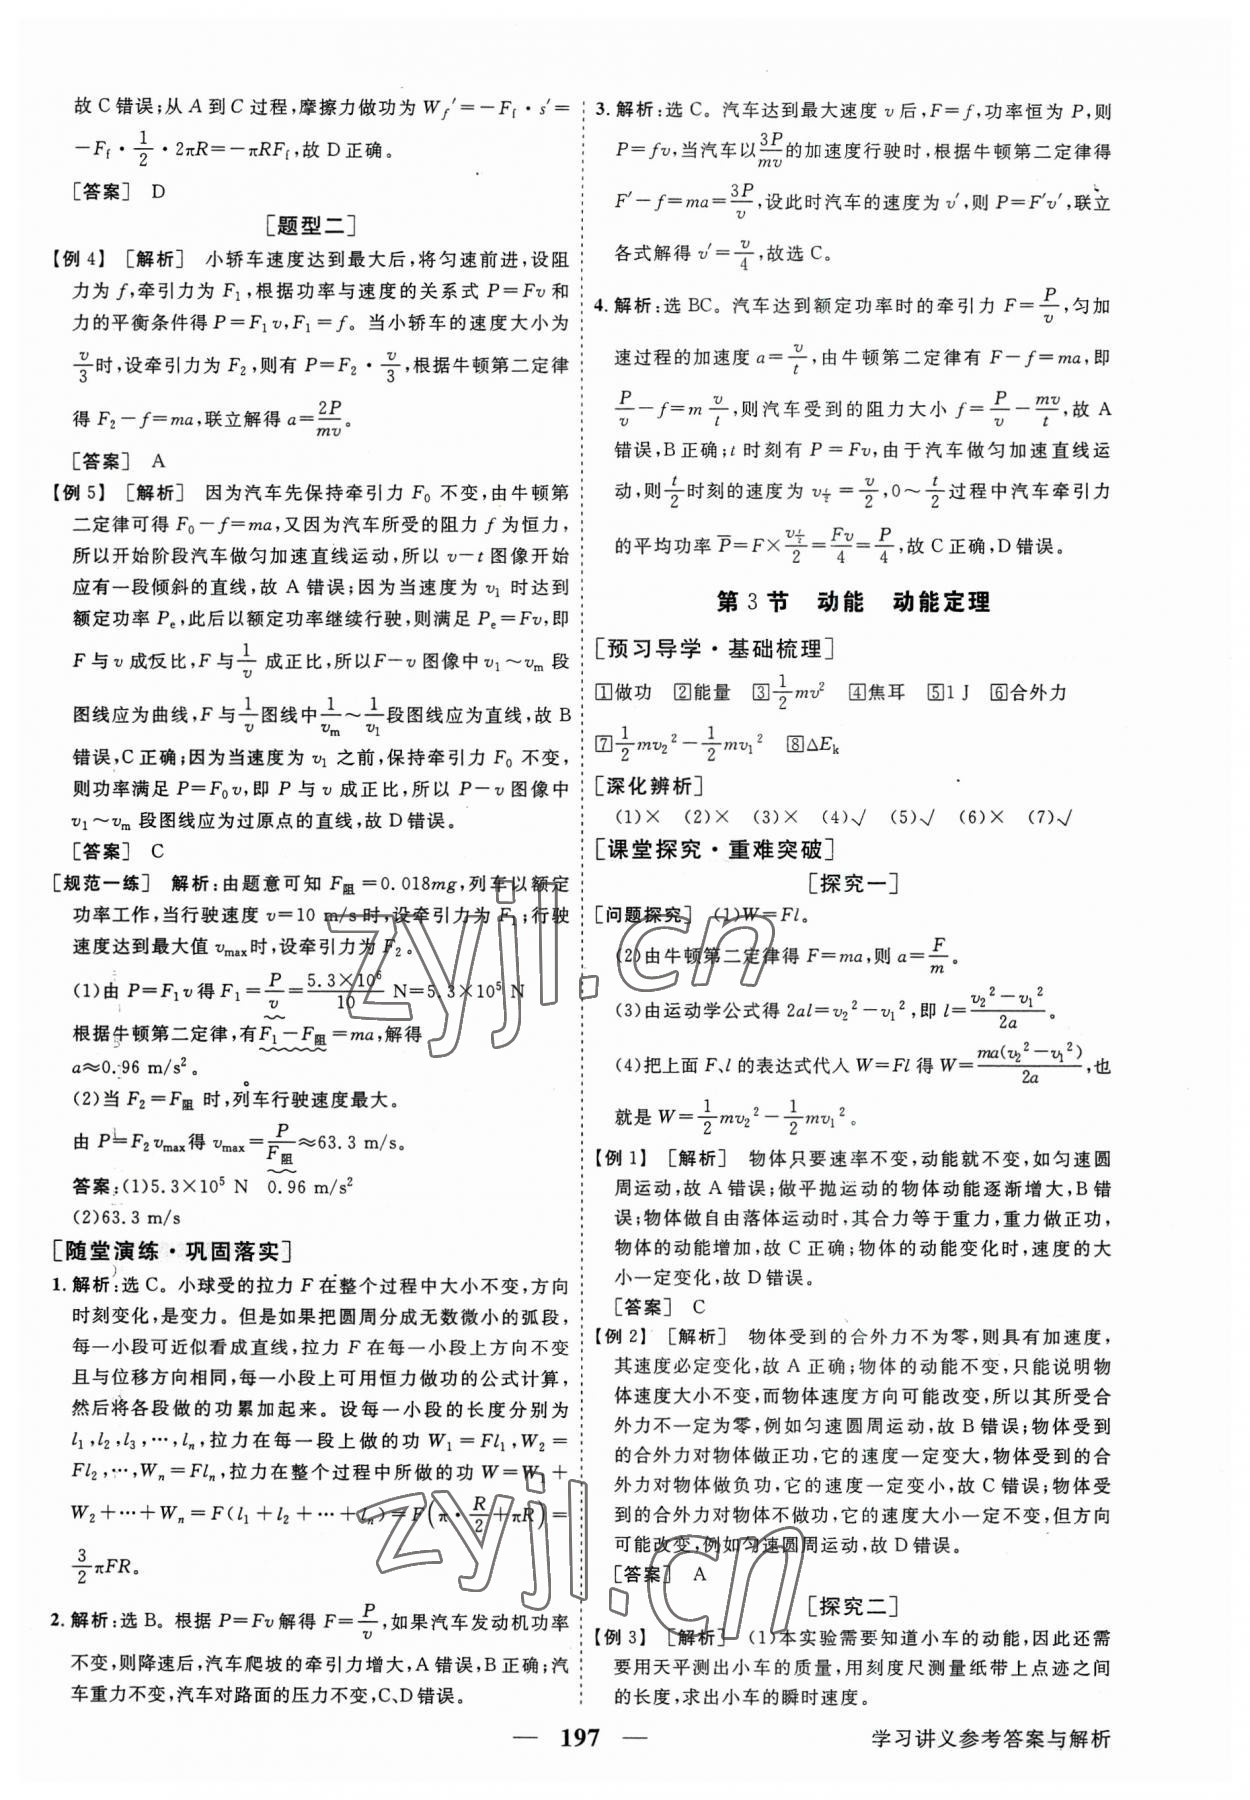 故 C 错误;从 A 到 C 过程,摩擦力做功为 W_f′=-F_f·s′=
-F_f·\frac{1}{2}·2πR=-πRF_f,故 D 正确。
[答案] D
[题型二]
【例 4】 [解析] 小轿车速度达到最大后,将匀速前进,设阻
力为 f,牵引力为 F₁,根据功率与速度的关系式 P=Fv 和
力的平衡条件得 P=F₁v,F₁=f。当小轿车的速度大小为
\frac{v}{3}时,设牵引力为 F₂,则有 P=F₂·\frac{v}{3},根据牛顿第二定律
得 F₂-f=ma,联立解得 a=\frac{2P}{mv}。
[答案] A
【例 5】 [解析] 因为汽车先保持牵引力 F₀ 不变,由牛顿第
二定律可得 F₀-f=ma,又因为汽车所受的阻力 f 为恒力,
所以开始阶段汽车做匀加速直线运动,所以 v-t 图像开始
应有一段倾斜的直线,故 A 错误;因为当速度为 v₁ 时达到
额定功率 P_e,此后以额定功率继续行驶,则有 P_e=Fv,即
F 与 v 成反比,F 与\frac{1}{v}成正比,所以F-v 图像中 v₁~v_m 段
图线应为曲线,F 与\frac{1}{v}图线中\frac{1}{v_m}~\frac{1}{v₁}段图线应为直线,故 B
错误,C 正确;因为当速度为 v₁ 之前,保持牵引力 F₀ 不变,
则功率满足 P=F₀v,即 P 与 v 成正比,所以 P-v 图像中
v₁~v_m 段图线应为过原点的直线,故 D 错误。
[答案] C
[规范一练] 解析:由题意可知 F_阻=0.018mg,列车以额定
功率工作,当行驶速度 v=10 m/s 时,设牵引力为 F₁;行驶
速度达到最大值 v_max 时,设牵引力为 F₂。
(1)由 P=F₁v 得 F₁=\frac{P}{v}=\frac{5.3×10⁶}{10} N=5.3×10⁵ N
根据牛顿第二定律,有F₁-F_阻=ma,解得
a≈0.96 m/s²。
(2)当 F₂=F_阻 时,列车行驶速度最大。
由 P=F₂v_max得 v_max=\frac{P}{F_阻}≈63.3 m/s。
答案:(1)5.3×10⁵ N 0.96 m/s²
(2)63.3 m/s
[随堂演练·巩固落实]
1. 解析:选 C。小球受的拉力 F 在整个过程中大小不变,方向
时刻变化,是变力。但是如果把圆周分成无数微小的弧段,
每一小段可近似看成直线,拉力 F 在每一小段上方向不变
且与位移方向相同,每一小段上可用恒力做功的公式计算,
然后将各段做的功累加起来。设每一小段的长度分别为
l₁,l₂,l₃,…,l_n,拉力在每一段上做的功 W₁=Fl₁,W₂=
Fl₂,…,W_n=Fl_n,拉力在整个过程中所做的功 W=W₁+
W₂+…+W_n=F(l₁+l₂+…+l_n)=F(π·\frac{R}{2}+πR)=
\frac{3}{2}πFR。
2. 解析:选 B。根据 P=Fv 解得 F=\frac{P}{v},如果汽车发动机功率
不变,则降速后,汽车爬坡的牵引力增大,A 错误,B 正确;汽
车重力不变,汽车对路面的压力不变,C、D 错误。
3. 解析:选 C。汽车达到最大速度 v 后,F=f,功率恒为 P,则
P=fv,当汽车以\frac{3P}{mv}的加速度行驶时,根据牛顿第二定律得
F′-f=ma=\frac{3P}{v},设此时汽车的速度为 v′,则 P=F′v′,联立
各式解得 v′=\frac{v}{4},故选 C。
4. 解析:选 BC。汽车达到额定功率时的牵引力 F=\frac{P}{v},匀加
速过程的加速度 a=\frac{v}{t},由牛顿第二定律有 F-f=ma,即
\frac{P}{v}-f=m\frac{v}{t},则汽车受到的阻力大小 f=\frac{P}{v}-\frac{mv}{t},故 A
错误,B 正确;t 时刻有 P=Fv,由于汽车做匀加速直线运
动,则\frac{t}{2}时刻的速度为 v_{\frac{t}{2}}=\frac{v}{2},0~\frac{t}{2}过程中汽车牵引力
的平均功率 \overline{P}=F×\frac{v_{\frac{t}{2}}}{2}=\frac{Fv}{4}=\frac{P}{4},故 C 正确,D 错误。
第 3 节 动能 动能定理
[预习导学·基础梳理]
①做功 ②能量 ③\frac{1}{2}mv² ④焦耳 ⑤1 J ⑥合外力
⑦\frac{1}{2}mv₂²-\frac{1}{2}mv₁² ⑧ΔE_k
[深化辨析]
(1)× (2)× (3)× (4)√ (5)√ (6)× (7)√
[课堂探究·重难突破]
[探究一]
[问题探究] (1)W=Fl。
(2)由牛顿第二定律得 F=ma,则 a=\frac{F}{m}。
(3)由运动学公式得 2al=v₂²-v₁²,即 l=\frac{v₂²-v₁²}{2a}。
(4)把上面 F、l 的表达式代人 W=Fl 得 W=\frac{ma(v₂²-v₁²)}{2a},也
就是 W=\frac{1}{2}mv₂²-\frac{1}{2}mv₁²。
【例 1】 [解析] 物体只要速率不变,动能就不变,如匀速圆
周运动,故 A 错误;做平抛运动的物体动能逐渐增大,B 错
误;物体做自由落体运动时,其合力等于重力,重力做正功,
物体的动能增加,故 C 正确;物体的动能变化时,速度的大
小一定变化,故 D 错误。
[答案] C
【例 2】 [解析] 物体受到的合外力不为零,则具有加速度,
其速度必定变化,故 A 正确;物体的动能不变,只能说明物
体速度大小不变,而物体速度方向可能改变,所以其所受合
外力不一定为零,例如匀速圆周运动,故 B 错误;物体受到
的合外力对物体做正功,它的速度一定变大,物体受到的合
外力对物体做负功,它的速度一定变小,故 C 错误;物体受
到的合外力对物体不做功,它的速度大小一定不变,但方向
可能改变,例如匀速圆周运动,故 D 错误。
[答案] A
[探究二]
【例 3】 [解析] (1)本实验需要知道小车的动能,因此还需
要用天平测出小车的质量,用刻度尺测量纸带上点迹之间
的长度,求出小车的瞬时速度。
— 197 —
学习讲义参考答案与解析
zyjl.cn
zyjl.cn